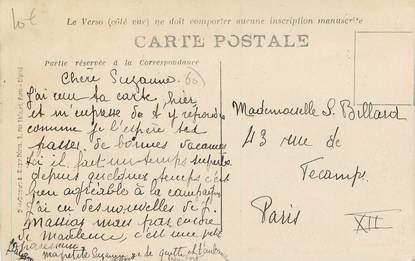 10€
Le Verso (côté vue) ne doit comporter aucune inscription manuscrite
CARTE POSTALE
Partie réservée à la Correspondance
Chère Suzanne.
J'ai reçu ta carte, hier
et m'empresse de t'y répondre
comme je l'espère tes
passes de bonnes vacances
Ici il fait un temps superbe
depuis quelques temps c'est
bien agréable à la campagne
J'ai eu des nouvelles de
Massias mais pas encore
de Madeleine, c'est une petite
paresseuse
ma petite Suzanne je te quitte et t'embrasse
Mademoiselle S. Billard
43 rue de
Fecamp
Paris
XII